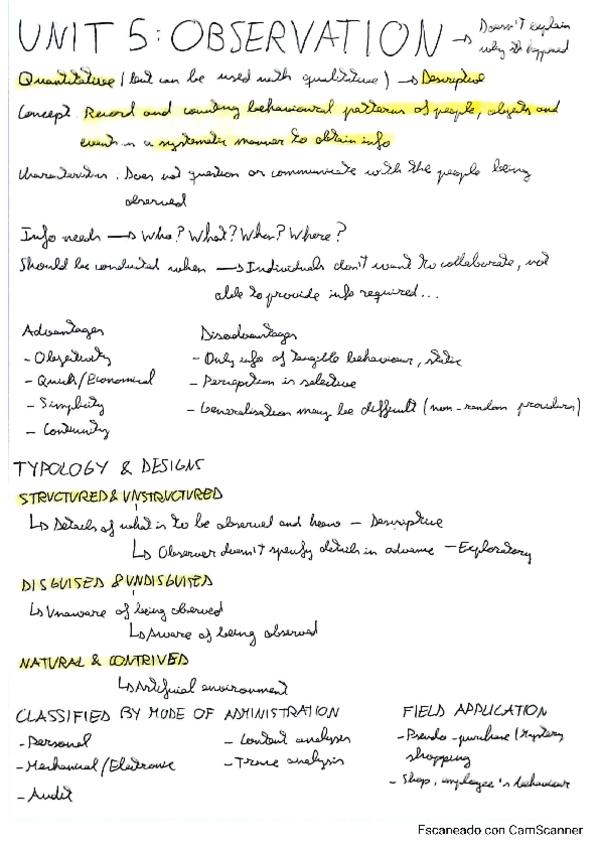 UNIT 5: OBSERVATION → Doesn't explain
why it happened
Quantitative (but can be used with qualitative) → Descriptive
Concept. Record and counting behavioural patterns of people, objects and
events in a systematic manner to obtain info
Characteristics. Does not question or communicate with the people being
observed
Info needs → Who? What? When? Where?
Should be conducted when → Individuals don't want to collaborate, not
able to provide info required...
Advantages
- Objectivity
- Quick/Economical
- Simplicity
- Continuity
Disadvantages
- Only info of tangible behaviour, static
- Perception is selective
- Generalisation may be difficult (non-random procedures)
TYPOLOGY & DESIGNS
STRUCTURED & UNSTRUCTURED
↳ Details of what is to be observed and how - Descriptive
↳ Observer doesn't specify details in advance - Exploratory
DISGUISED & UNDISGUISED
↳ Unaware of being oberved
↳ Aware of being observed
NATURAL & CONTRIVED
↳ Artificial environment
CLASSIFIED BY MODE OF ADMINISTRATION
- Personal
- Mechanical/Electronic
- Audit
- Content analysis
- Trace analysis
FIELD APPLICATION
- Pseudo-purchase (Mystery
shopping
- Shop, employee's behaviour
Escaneado con CamScanner